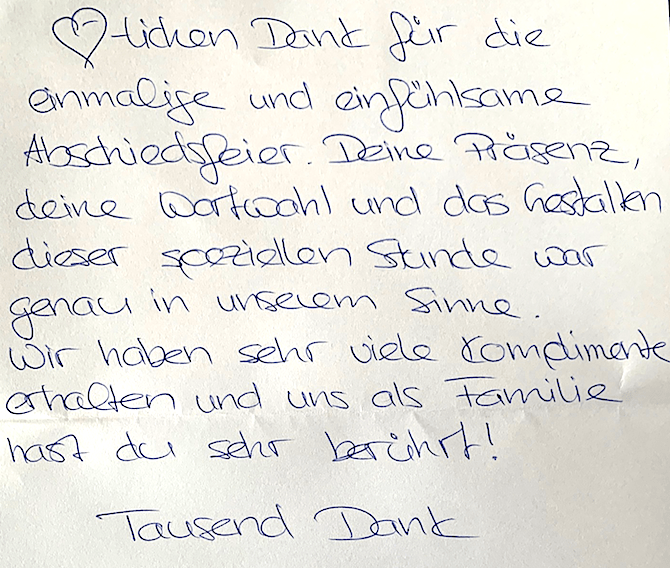 ♡-lichen Dank für die
einmalige und einfühlsame
Abschiedsfeier. Deine Präsenz,
deine Wortwahl und das Gestalten
dieser speziellen Stunde war
genau in unserem Sinne.
Wir haben sehr viele Komplimente
erhalten und uns als Familie
hast du sehr berührt!
Tausend Dank